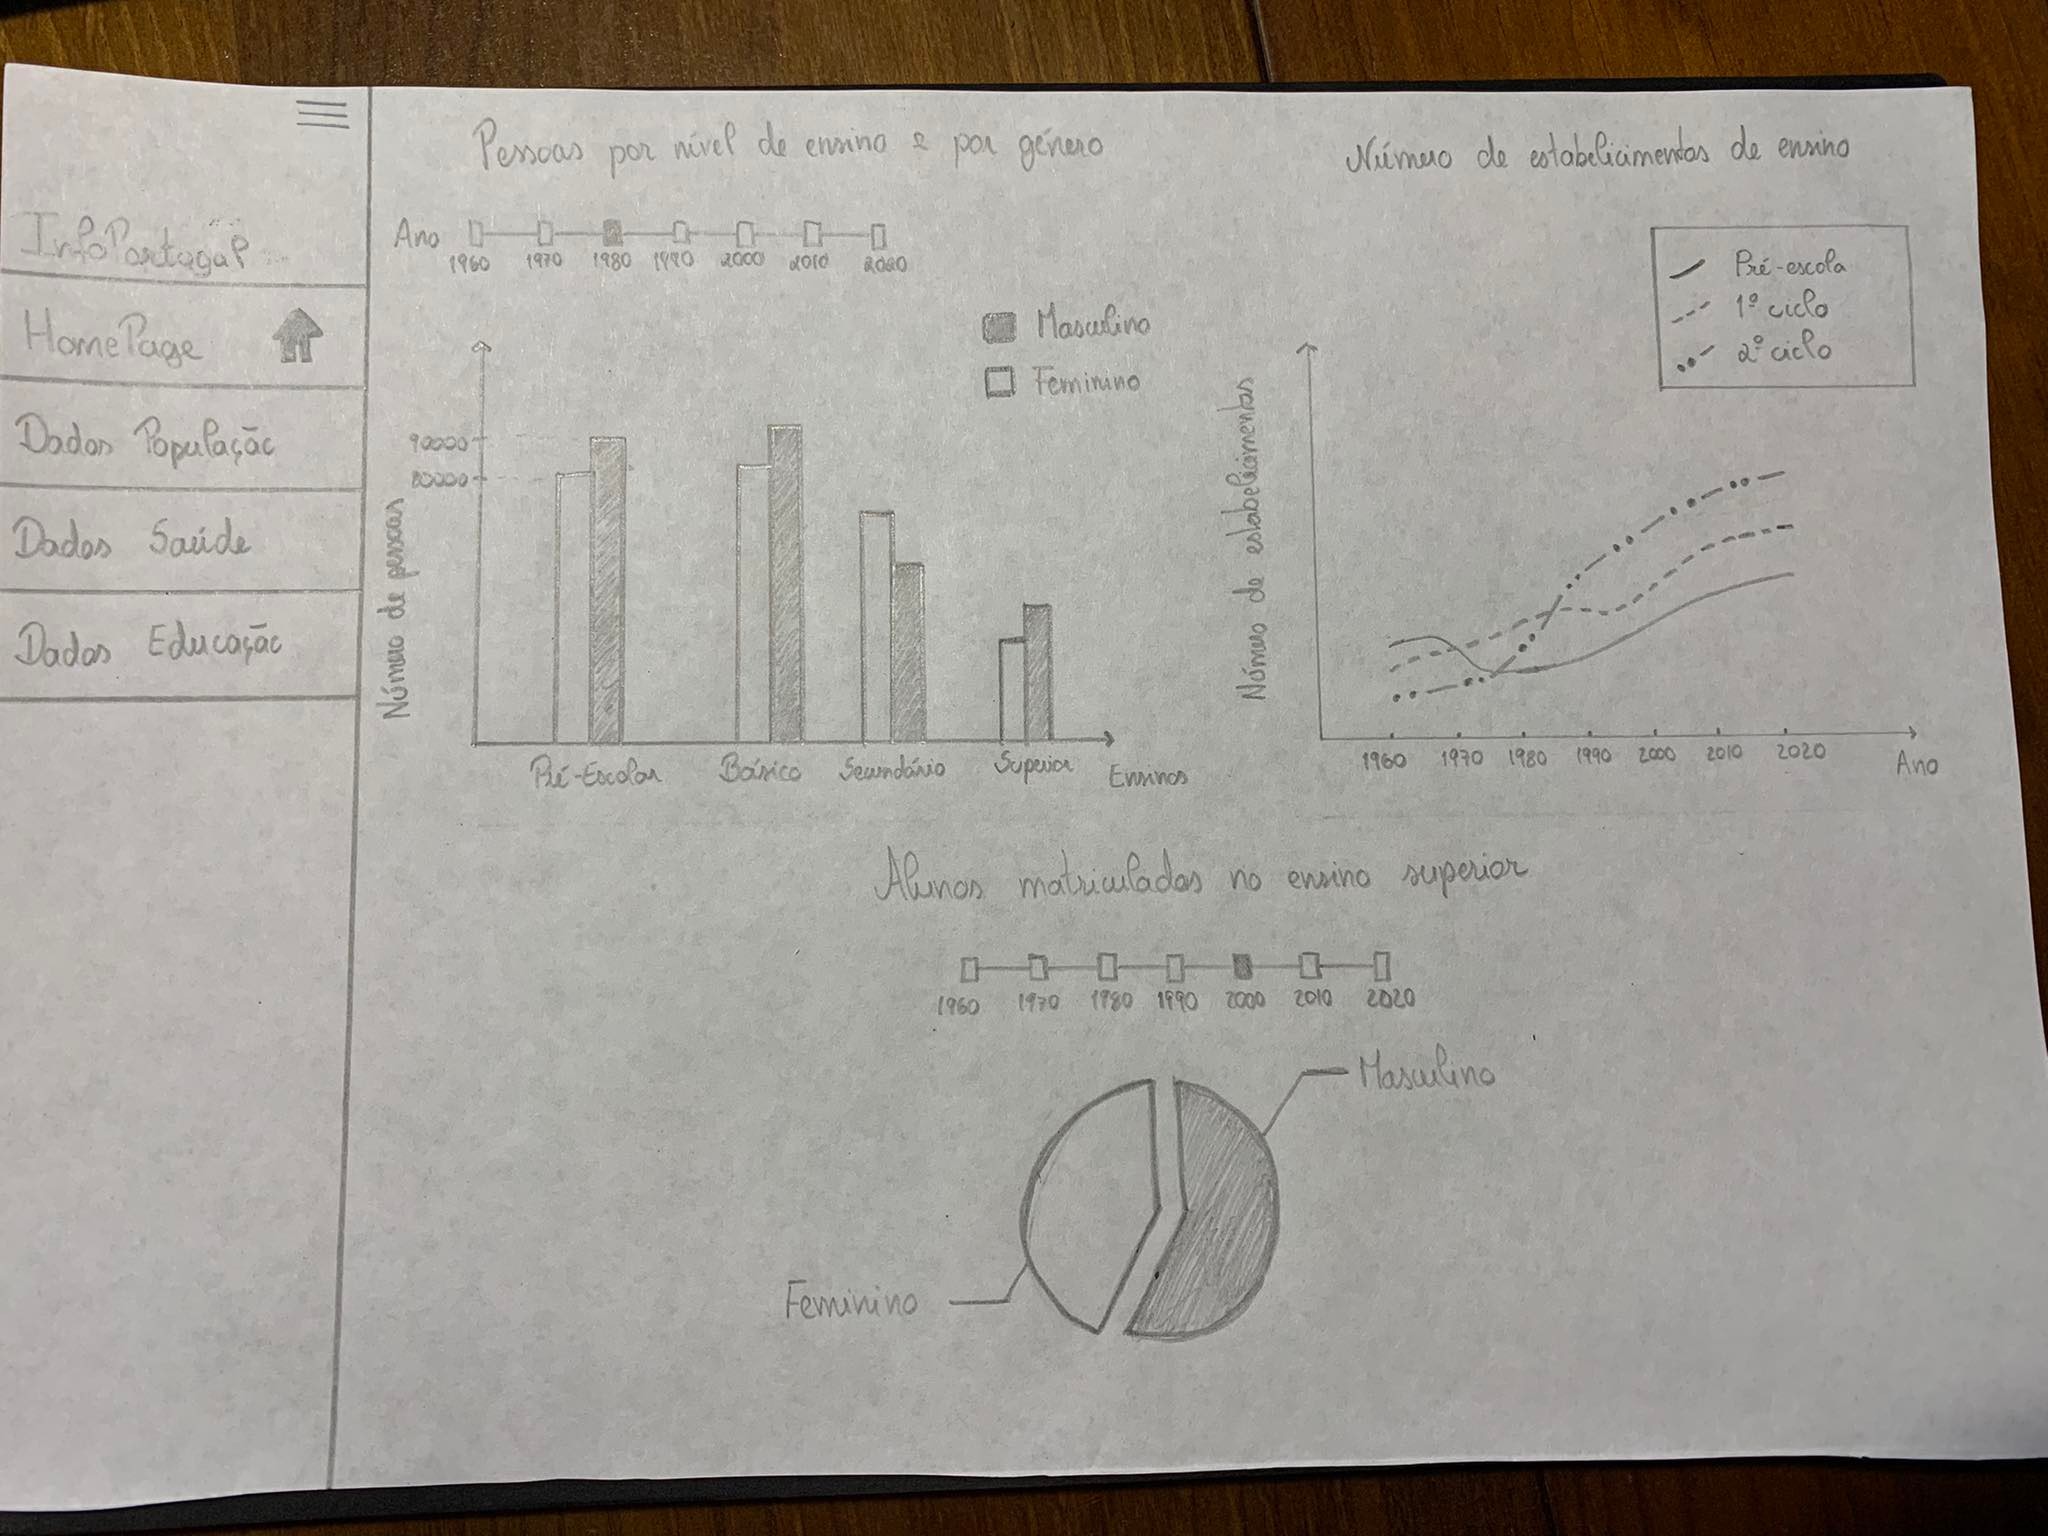 InfoPortugal
HomePage
Dados População
Dados Saúde
Dados Educação
Pessoas por nível de ensino e por género
Ano
1960 1970 1980 1990 2000 2010 2020
Masculino
Feminino
90000
80000
Número de pessoas
Pré-Escolar Básico Secundário Superior Ensinos
Número de estabelicimentos de ensino
Pré-escola
1º ciclo
2º ciclo
Número de estabelicimentos
1960 1970 1980 1990 2000 2010 2020 Ano
Alunos matriculados no ensino superior
1960 1970 1980 1990 2000 2010 2020
Masculino
Feminino